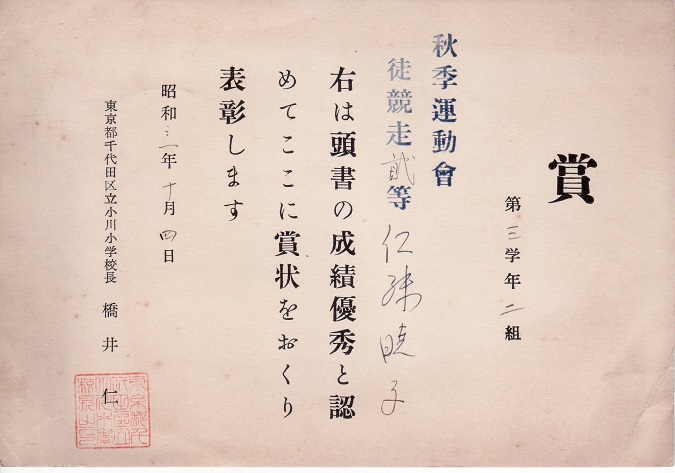 賞
第三学年二組
秋季運動會
徒競走貮等
仁 暁子
右は頭書の成績優秀と認
めてここに賞状をおくり
表彰します
昭和三一年十月四日
東京都千代田区立小川小学校長 橋井 仁